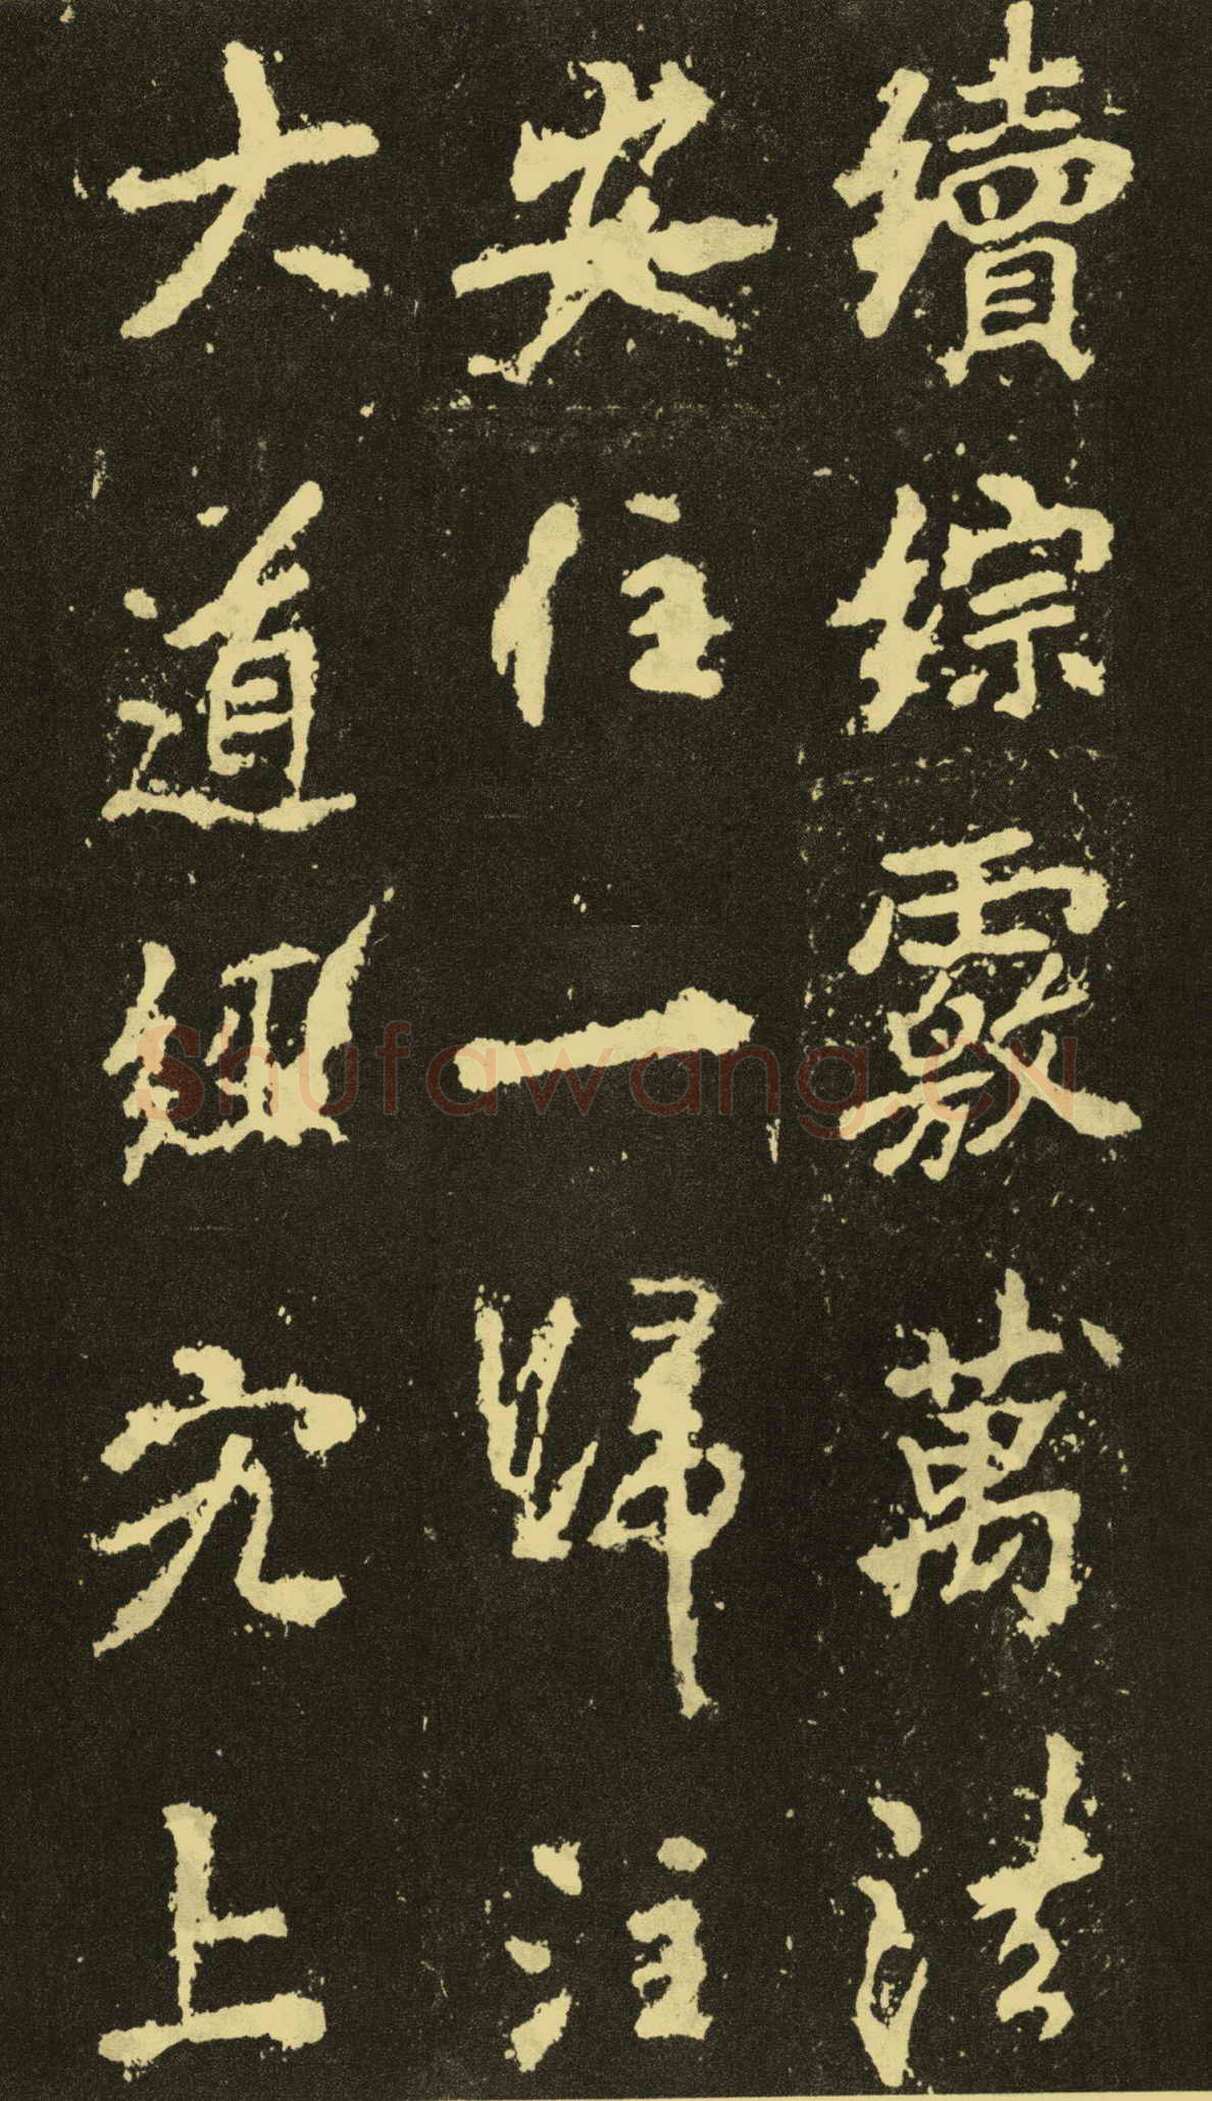 續綜覈萬法
安住一歸注
大道經究上
Shufawang.CN